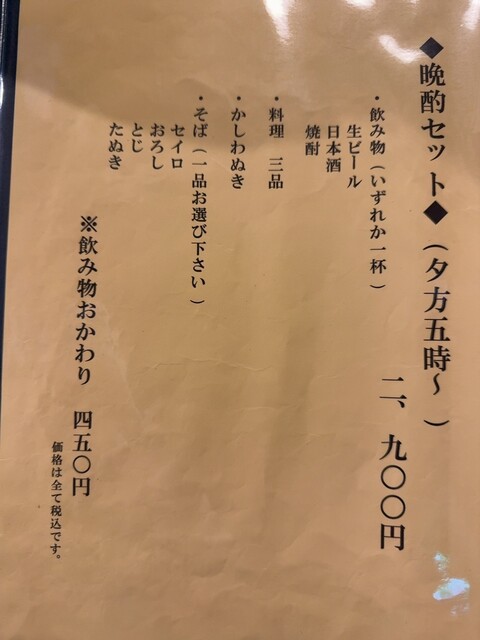 ◆晩酌セット◆（夕方五時～）
二、九〇〇円
・飲み物（いずれか一杯）
生ビール
日本酒
焼酎
・料理　三品
・かしわぬき
・そば（一品お選び下さい）
セイロ
おろし
とじ
たぬき
※飲み物おかわり　四五〇円
価格は全て税込です。